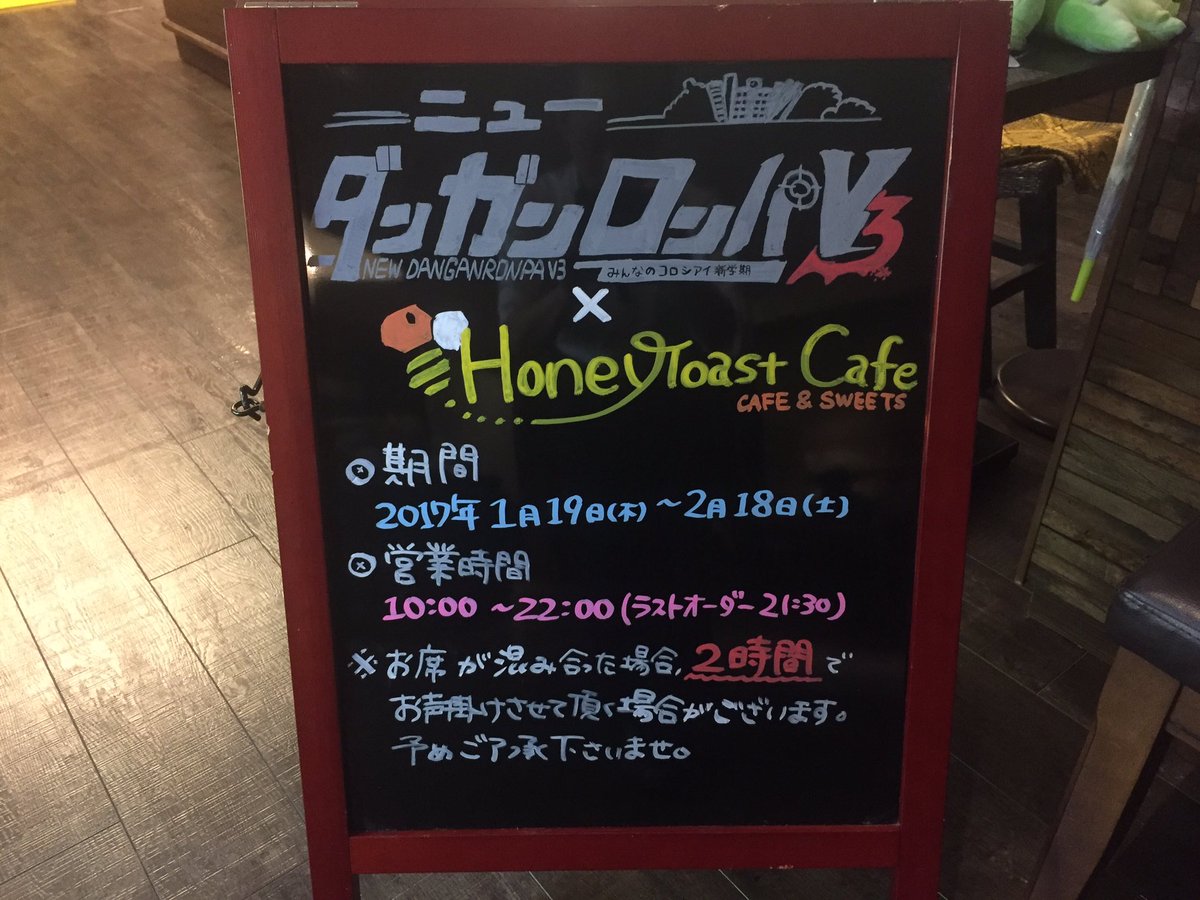 ニュー
ダンガンロンパV3
NEW DANGANRONPA V3
みんなのコロシアイ新学期
×
HoneyToast Cafe
CAFE & SWEETS
期間
2017年1月19日(木)～2月18日(土)
営業時間
10:00～22:00(ラストオーダー21:30)
※お席が混み合った場合、2時間で
お声掛けさせて頂く場合がございます。
予めご了承下さいませ。